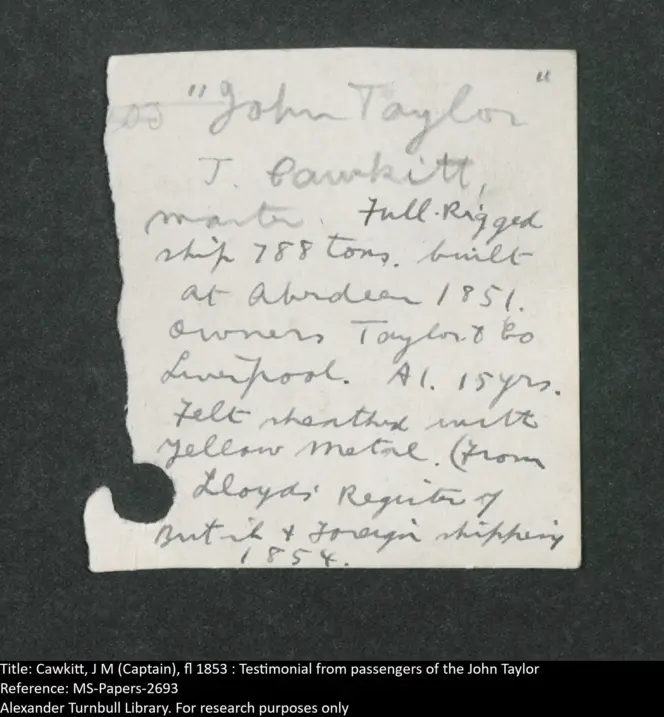 "John Taylor"
J. Cawkitt,
master. Full-Rigged
ship 788 tons. built
at Aberdeen 1851.
Owners Taylor & Co
Liverpool. A1. 15 yrs.
Felt sheathed with
Yellow Metal. (From
Lloyds' Register of
British & Foreign shipping
1854.
Title: Cawkitt, J M (Captain), fl 1853 : Testimonial from passengers of the John Taylor
Reference: MS-Papers-2693
Alexander Turnbull Library. For research purposes only